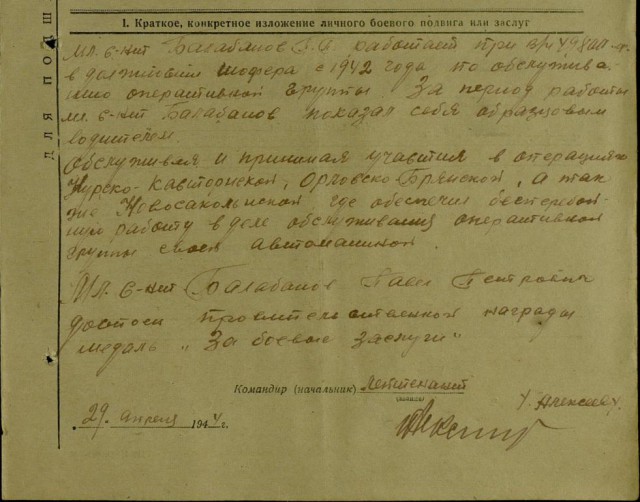 I. Краткое, конкретное изложение личного боевого подвига или заслуг
Мл. с-нит Балабанов П.П. работает при в/ч 49800-
в должности шофера с 1942 года по обслужива-
нию оперативной группы. За период работы
мл. с-нит Балабанов показал себя образцовым
водителем.
Обслуживая и принимая участия в операциях
Курско-, Орловско-Брянской, а так
же Новосокольнской где обеспечил бесперебой-
ную работу в деле обслуживания оперативной
группы своей автомашиной.
Мл. с-нит Балабанов Павел Петрович
достоен правительственной награды
медаль „За боевые заслуги"
Командир (начальник) Лейтенант
/Алексеев/
29 апреля 1944 г.
ДЛЯ ПОДШ